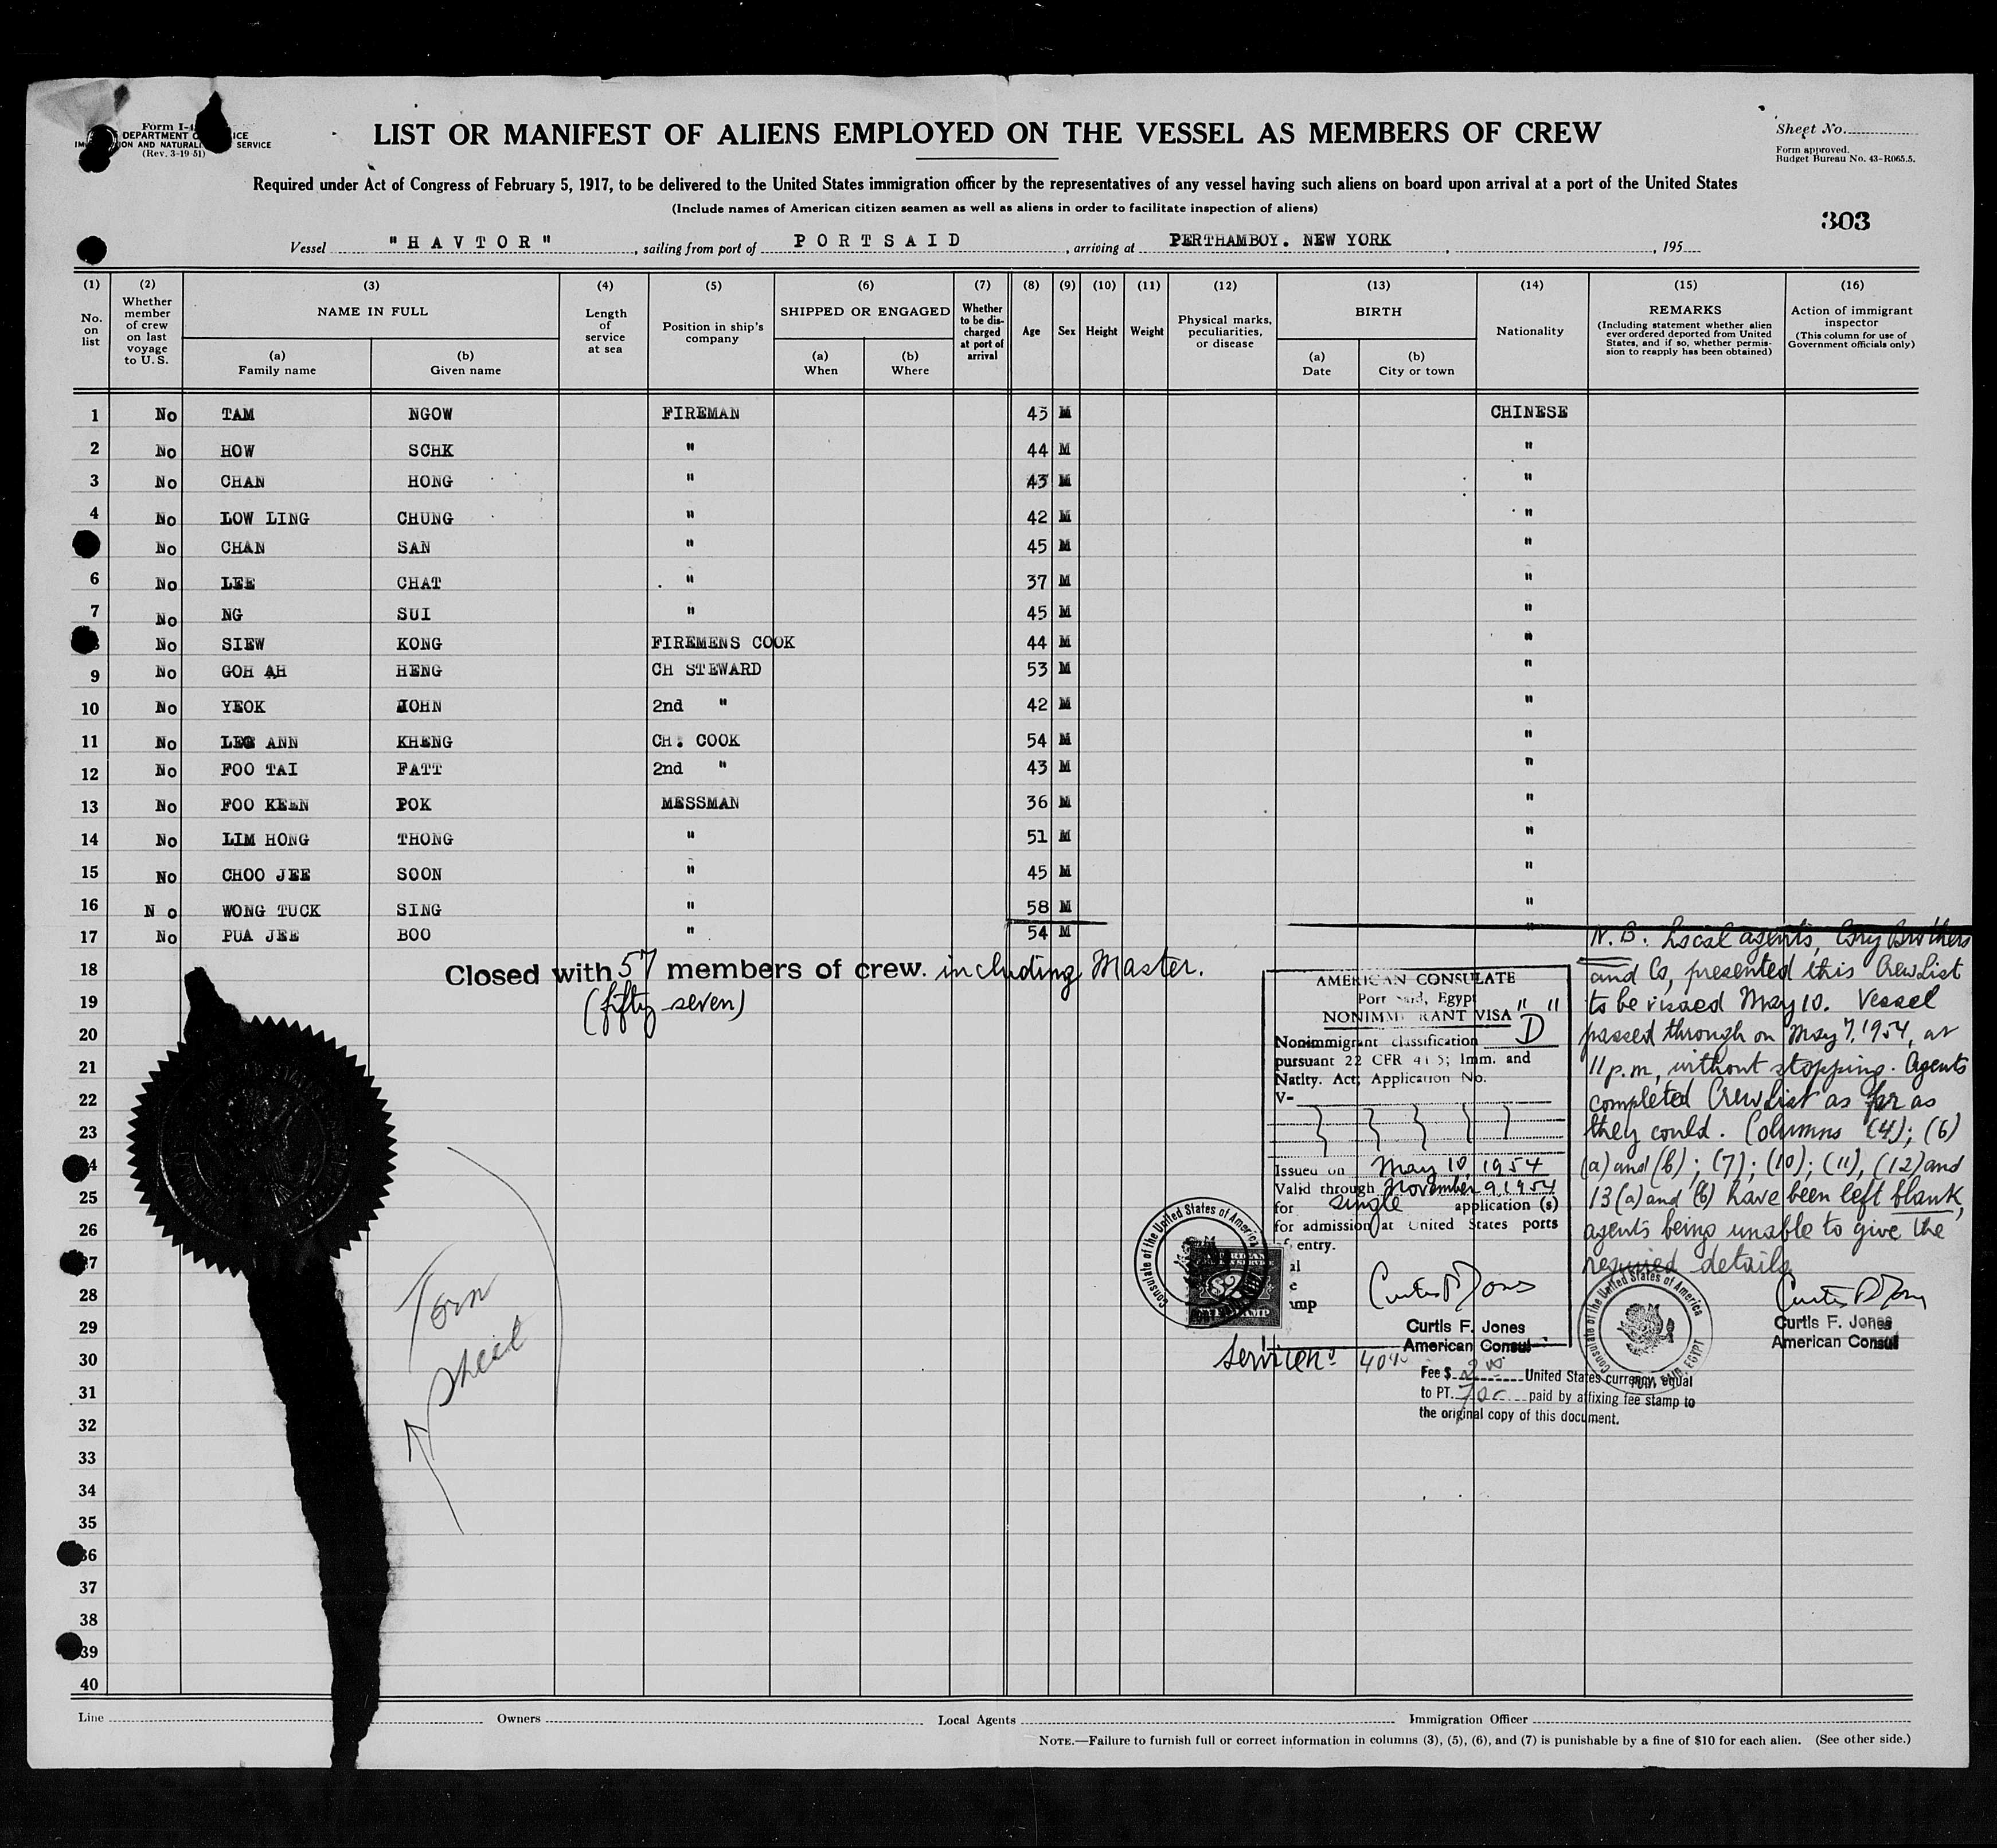 Form I-4
DEPARTMENT OF JUSTICE
IMMIGRATION AND NATURALIZATION SERVICE
(Rev. 3-19-51)
LIST OR MANIFEST OF ALIENS EMPLOYED ON THE VESSEL AS MEMBERS OF CREW
Sheet No.
Form approved.
Budget Bureau No. 43-R065.5.
Required under Act of Congress of February 5, 1917, to be delivered to the United States immigration officer by the representatives of any vessel having such aliens on board upon arrival at a port of the United States
(Include names of American citizen seamen as well as aliens in order to facilitate inspection of aliens)
303
Vessel "HAVTOR", sailing from port of PORTSAID, arriving at PERTHAMBOY. NEW YORK, 195
(1) No. on list
(2) Whether member of crew on last voyage to U. S.
(3) NAME IN FULL
(a) Family name
(b) Given name
(4) Length of service at sea
(5) Position in ship's company
(6) SHIPPED OR ENGAGED
(a) When
(b) Where
(7) Whether to be discharged at port of arrival
(8) Age
(9) Sex
(10) Height
(11) Weight
(12) Physical marks, peculiarities, or disease
(13) BIRTH
(a) Date
(b) City or town
(14) Nationality
(15) REMARKS
(Including statement whether alien ever ordered deported from United States, and if so, whether permission to reapply has been obtained)
(16) Action of immigrant inspector
(This column for use of Government officials only)
1 No TAM NGOW FIREMAN 45 M CHINESE
2 No HOW SCHK " 44 M "
3 No CHAN HONG " 43 M "
4 No LOW LING CHUNG " 42 M "
No CHAN SAN " 45 M "
6 No LEE CHAT " 37 M "
7 No NG SUI " 45 M "
8 No SIEW KONG FIREMENS COOK 44 M "
9 No GOH AH HENG CH STEWARD 53 M "
10 No YEOK JOHN 2nd " 42 M "
11 No LEE ANN KHENG CH. COOK 54 M "
12 No FOO TAI FATT 2nd " 43 M "
13 No FOO KEEN POK MESSMAN 36 M "
14 No LIM HONG THONG " 51 M "
15 No CHOO JEE SOON " 45 M "
16 N o WONG TUCK SING " 58 M "
17 No PUA JEE BOO " 54 M "
18
19
20
21
22
23
24
25
26
27
28
29
30
31
32
33
34
35
36
37
38
39
40
Closed with 57 members of crew. including Master.
(fifty seven)
Torn
Sheet
AMERICAN CONSULATE
Port Said, Egypt
NONIMMIGRANT VISA
Nonimmigrant classification "D"
pursuant 22 CFR 41 5; Imm. and
Natlty. Act; Application No.
V-
Issued on May 10, 1954
Valid through November 9, 1954
for single application (s)
for admission at United States ports
of entry.
Curtis F. Jones
Curtis F. Jones
American Consul
Consulate of the United States of America
Service No. 4040
Fee $ 2.00 United States currency, equal
to PT. 70 paid by affixing fee stamp to
the original copy of this document.
N.B. Local agents, Cory Brothers
and Co, presented this Crew List
to be visaed May 10. Vessel
passed through on May 7, 1954, at
11 p.m, without stopping. Agents
completed Crew List as far as
they could. Columns (4); (6)
(a) and (b); (7); (10); (11), (12) and
13 (a) and (b) have been left blank,
agents being unable to give the
required details
Curtis F. Jones
Curtis F. Jones
American Consul
Consulate of the United States of America
PORT SAID, EGYPT
Line
Owners
Local Agents
Immigration Officer
NOTE.—Failure to furnish full or correct information in columns (3), (5), (6), and (7) is punishable by a fine of $10 for each alien. (See other side.)